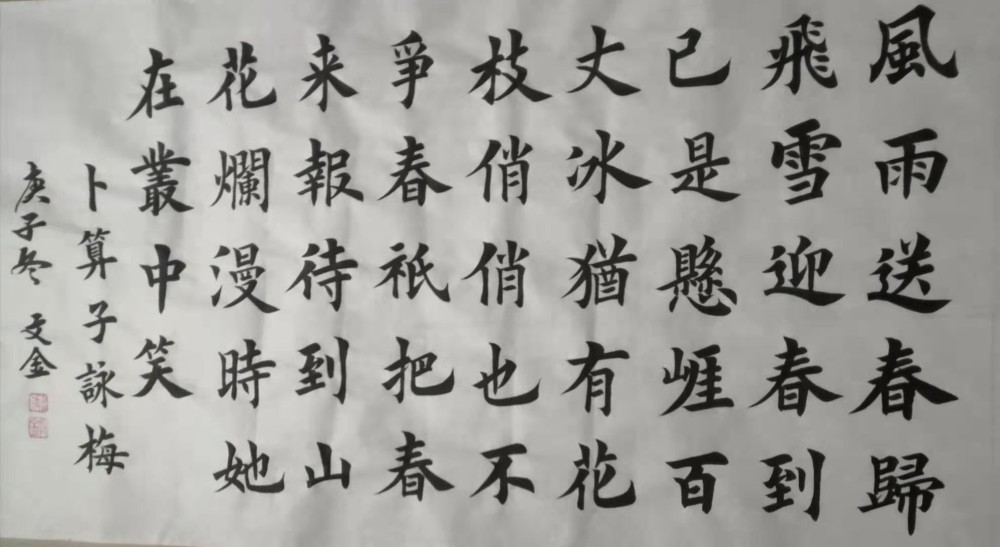 風雨送春歸
飛雪迎春到
已是懸崖百
丈冰猶有花
枝俏俏也不
爭春衹把春
来報待到山
花爛漫時她
在叢中笑
卜算子詠梅
庚子冬 文金